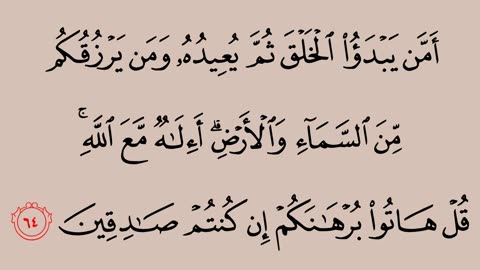 أَمَّن يَبْدَؤُا۟ ٱلْخَلْقَ ثُمَّ يُعِيدُهُۥ وَمَن يَرْزُقُكُم
مِّنَ ٱلسَّمَآءِ وَٱلْأَرْضِ ۗ أَءِلَـٰهٌ مَّعَ ٱللَّهِ ۚ
قُلْ هَاتُوا۟ بُرْهَـٰنَكُمْ إِن كُنتُمْ صَـٰدِقِينَ ٦٤